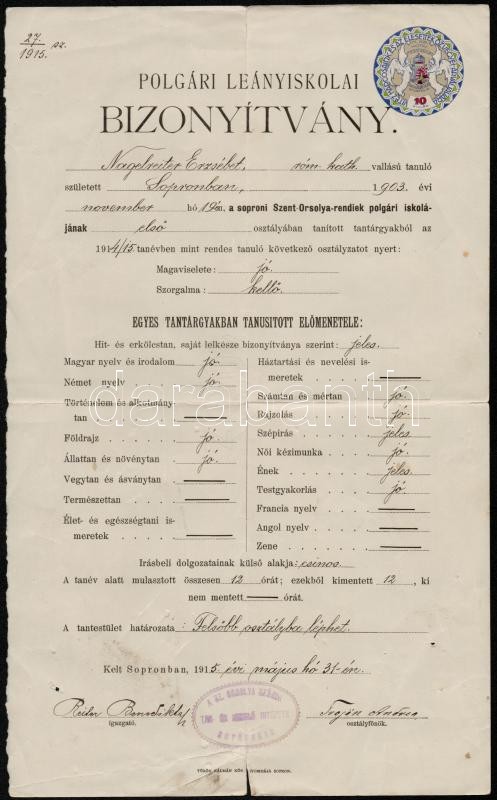 27. / 1915. sz.
10
POLGÁRI LEÁNYISKOLAI
BIZONYÍTVÁNY.
Nagelreiter Erzsébet, róm. kath. vallású tanuló
született Sopronban, 1903. évi
november hó 19én. a soproni Szent-Orsolya-rendiek polgári iskolá-
jának első osztályában tanított tantárgyakból az
1914/15. tanévben mint rendes tanuló következő osztályzatot nyert:
Magaviselete: jó.
Szorgalma: kellő.
EGYES TANTÁRGYAKBAN TANUSITOTT ELŐMENETELE:
Hit- és erkölcstan, saját lelkésze bizonyítványa szerint: jeles.
Magyar nyelv és irodalom jó.
Német nyelv jó.
Történelem és alkotmány-
tan
Földrajz jó
Állattan és növénytan jó.
Vegytan és ásványtan
Természettan
Élet- és egészségtani is-
meretek
Háztartási és nevelési is-
meretek
Számtan és mértan jó.
Rajzolás jó.
Szépírás jeles.
Női kézimunka jó.
Ének jeles.
Testgyakorlás jó.
Francia nyelv
Angol nyelv
Zene
darabanth
Irásbeli dolgozatainak külső alakja: csinos.
A tanév alatt mulasztott összesen 12 órát; ezekből kimentett 12, ki
nem mentett órát.
A tantestület határozata: Felsőbb osztályba léphet.
Kelt Sopronban, 1915. évi május hó 31-én.
igazgató.
osztályfőnök.